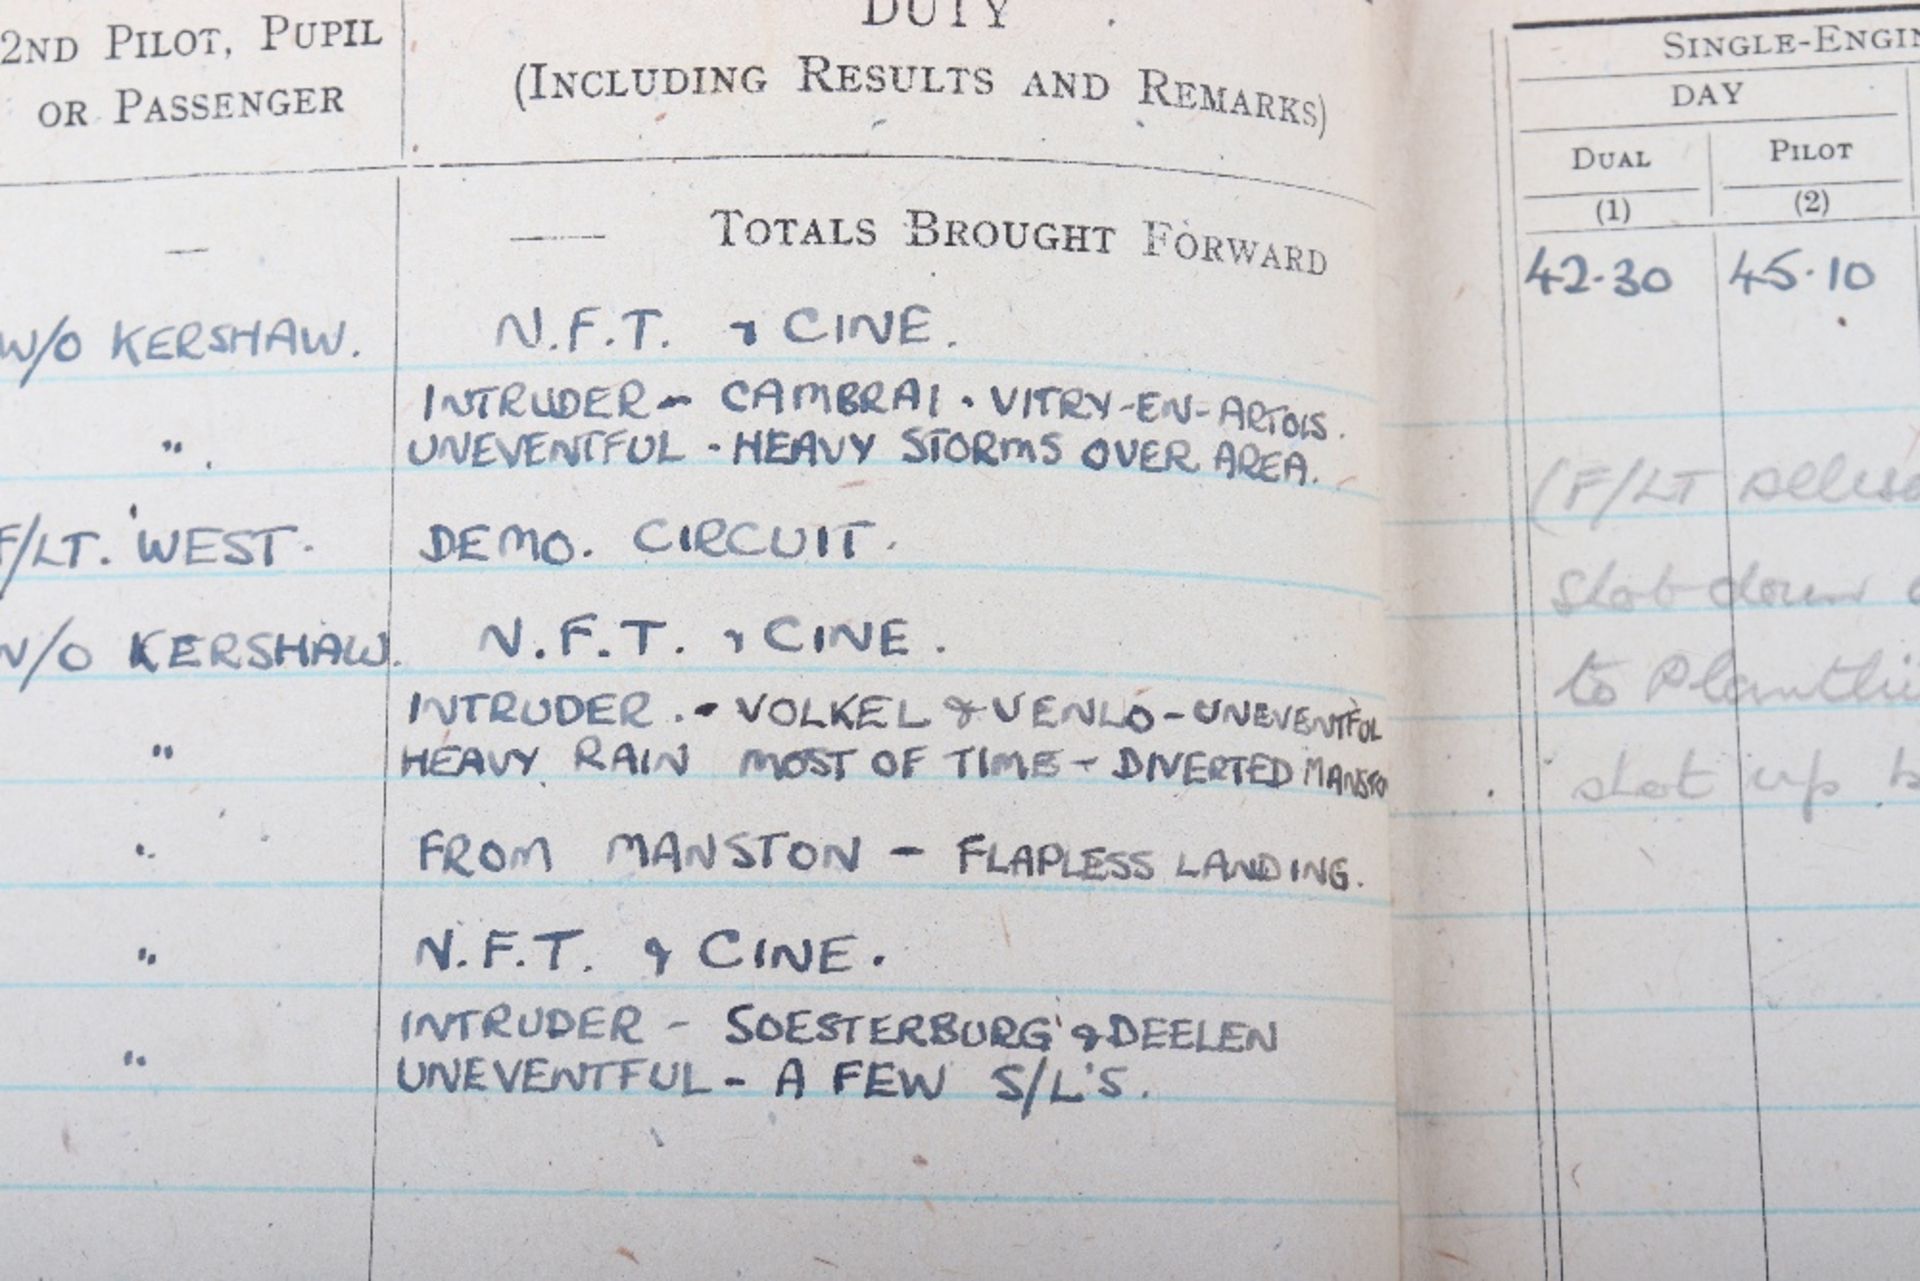 2ND PILOT, PUPIL
OR PASSENGER
DUTY
(INCLUDING RESULTS AND REMARKS)
SINGLE-ENGIN
DAY
DUAL
PILOT
(1)
(2)
— — TOTALS BROUGHT FORWARD
42·30 45·10
W/O KERSHAW. N.F.T. & CINE.
INTRUDER - CAMBRAI · VITRY-EN-ARTOIS.
" UNEVENTFUL - HEAVY STORMS OVER AREA.
F/LT. WEST. DEMO. CIRCUIT.
W/O KERSHAW. N.F.T. & CINE.
INTRUDER. - VOLKEL & VENLO - UNEVENTFUL
" HEAVY RAIN MOST OF TIME - DIVERTED MANSTO
" FROM MANSTON - FLAPLESS LANDING.
" N.F.T. & CINE.
INTRUDER - SOESTERBURG & DEELEN
" UNEVENTFUL - A FEW S/L'S.
(F/LT
shot down
to
shot up